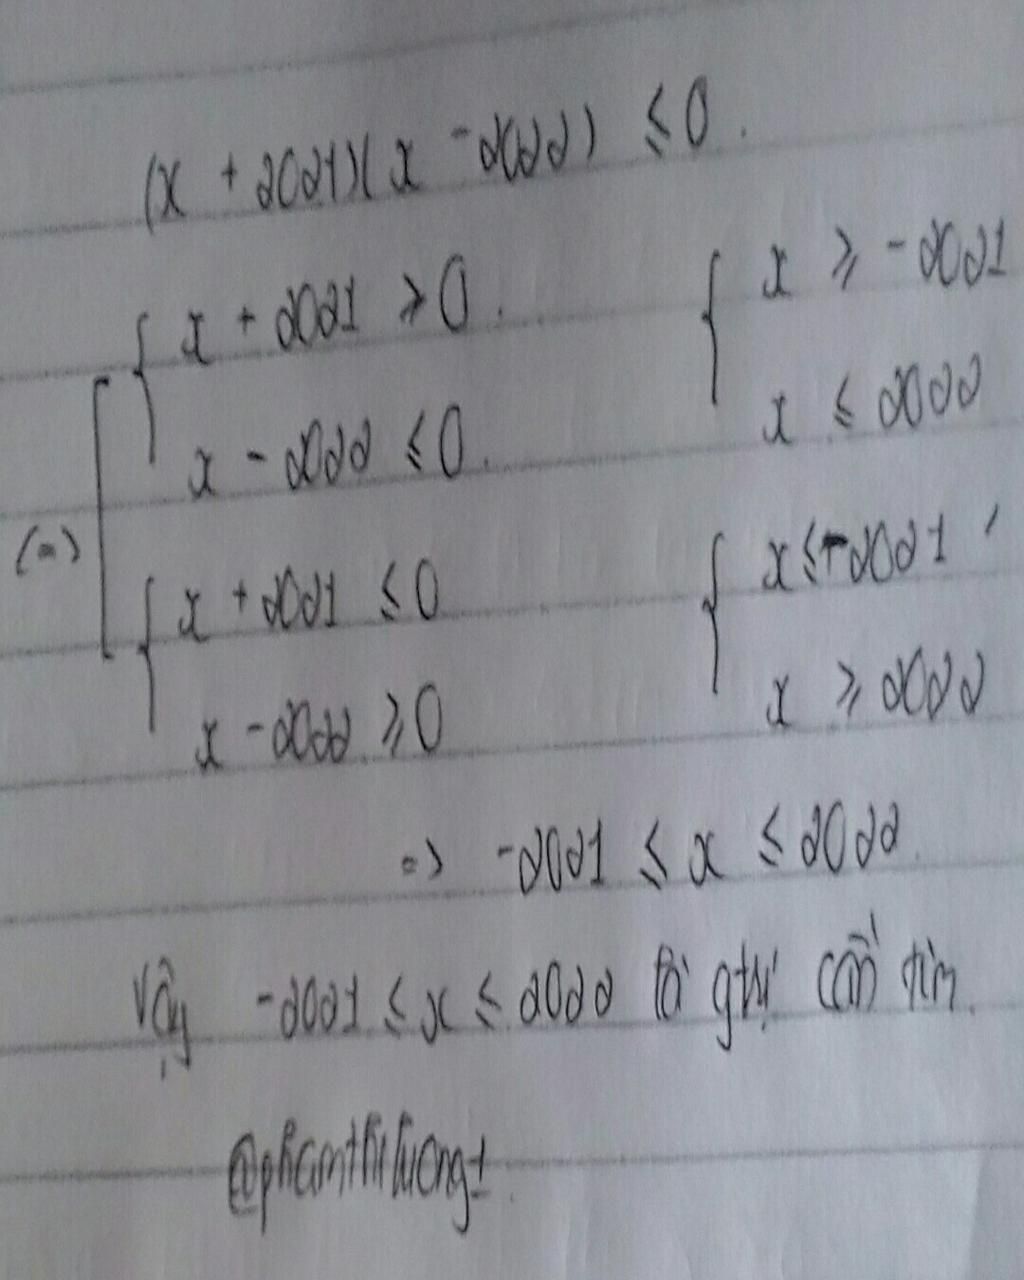 (x + 2021)(x - 2022) ≤ 0.
(=) [ { x + 2021 ≥ 0. { x ≥ -2021
x - 2022 ≤ 0. x ≤ 2022
{ x + 2021 ≤ 0 { x ≤ -2021
x - 2022 ≥ 0 x ≥ 2022
=> -2021 ≤ x ≤ 2022.
Vậy -2021 ≤ x ≤ 2022 là gtrị cần tìm.
@phamthiluong1.